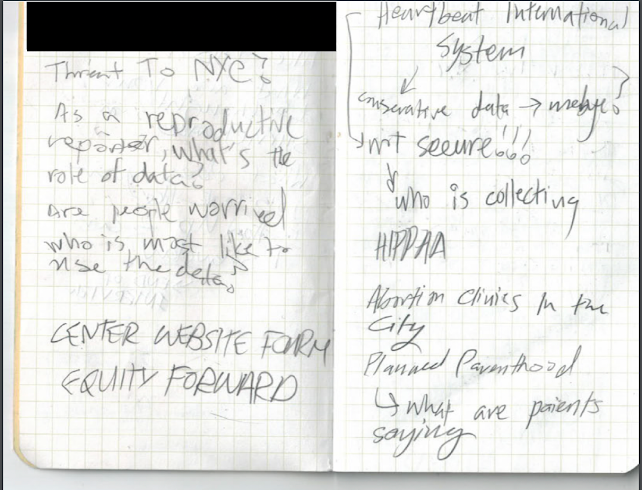 Threat To NYC?
As a reproductive
reporter, what's the
role of data?
Are people worried
who is most like to
use the data?
CENTER WEBSITE FORM
EQUITY FORWARD
Heartbeat International
System
conservative data → maybe?
not secure!!!
who is collecting
HIPPAA
Abortion Clinics In the
City
Planned Parenthood
↳ what are patients
saying